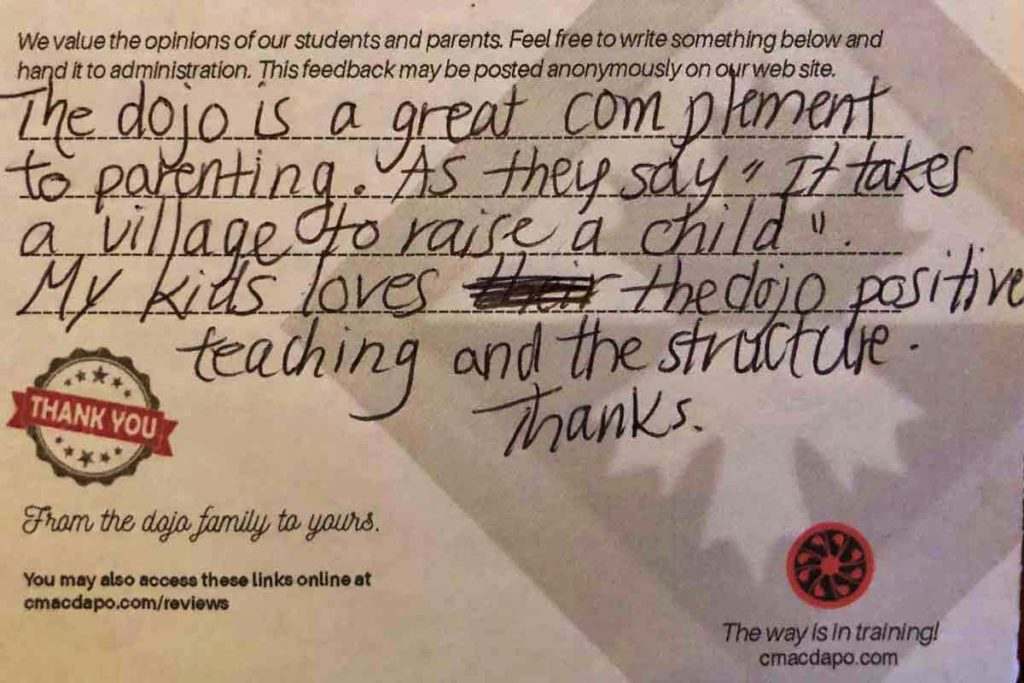 We value the opinions of our students and parents. Feel free to write something below and
hand it to administration. This feedback may be posted anonymously on our web site.
The dojo is a great complement
to parenting. As they say "It takes
a village to raise a child".
My kids loves their the dojo positive
teaching and the structure.
Thanks.
THANK YOU
From the dojo family to yours.
You may also access these links online at
cmacdapo.com/reviews
The way is in training!
cmacdapo.com